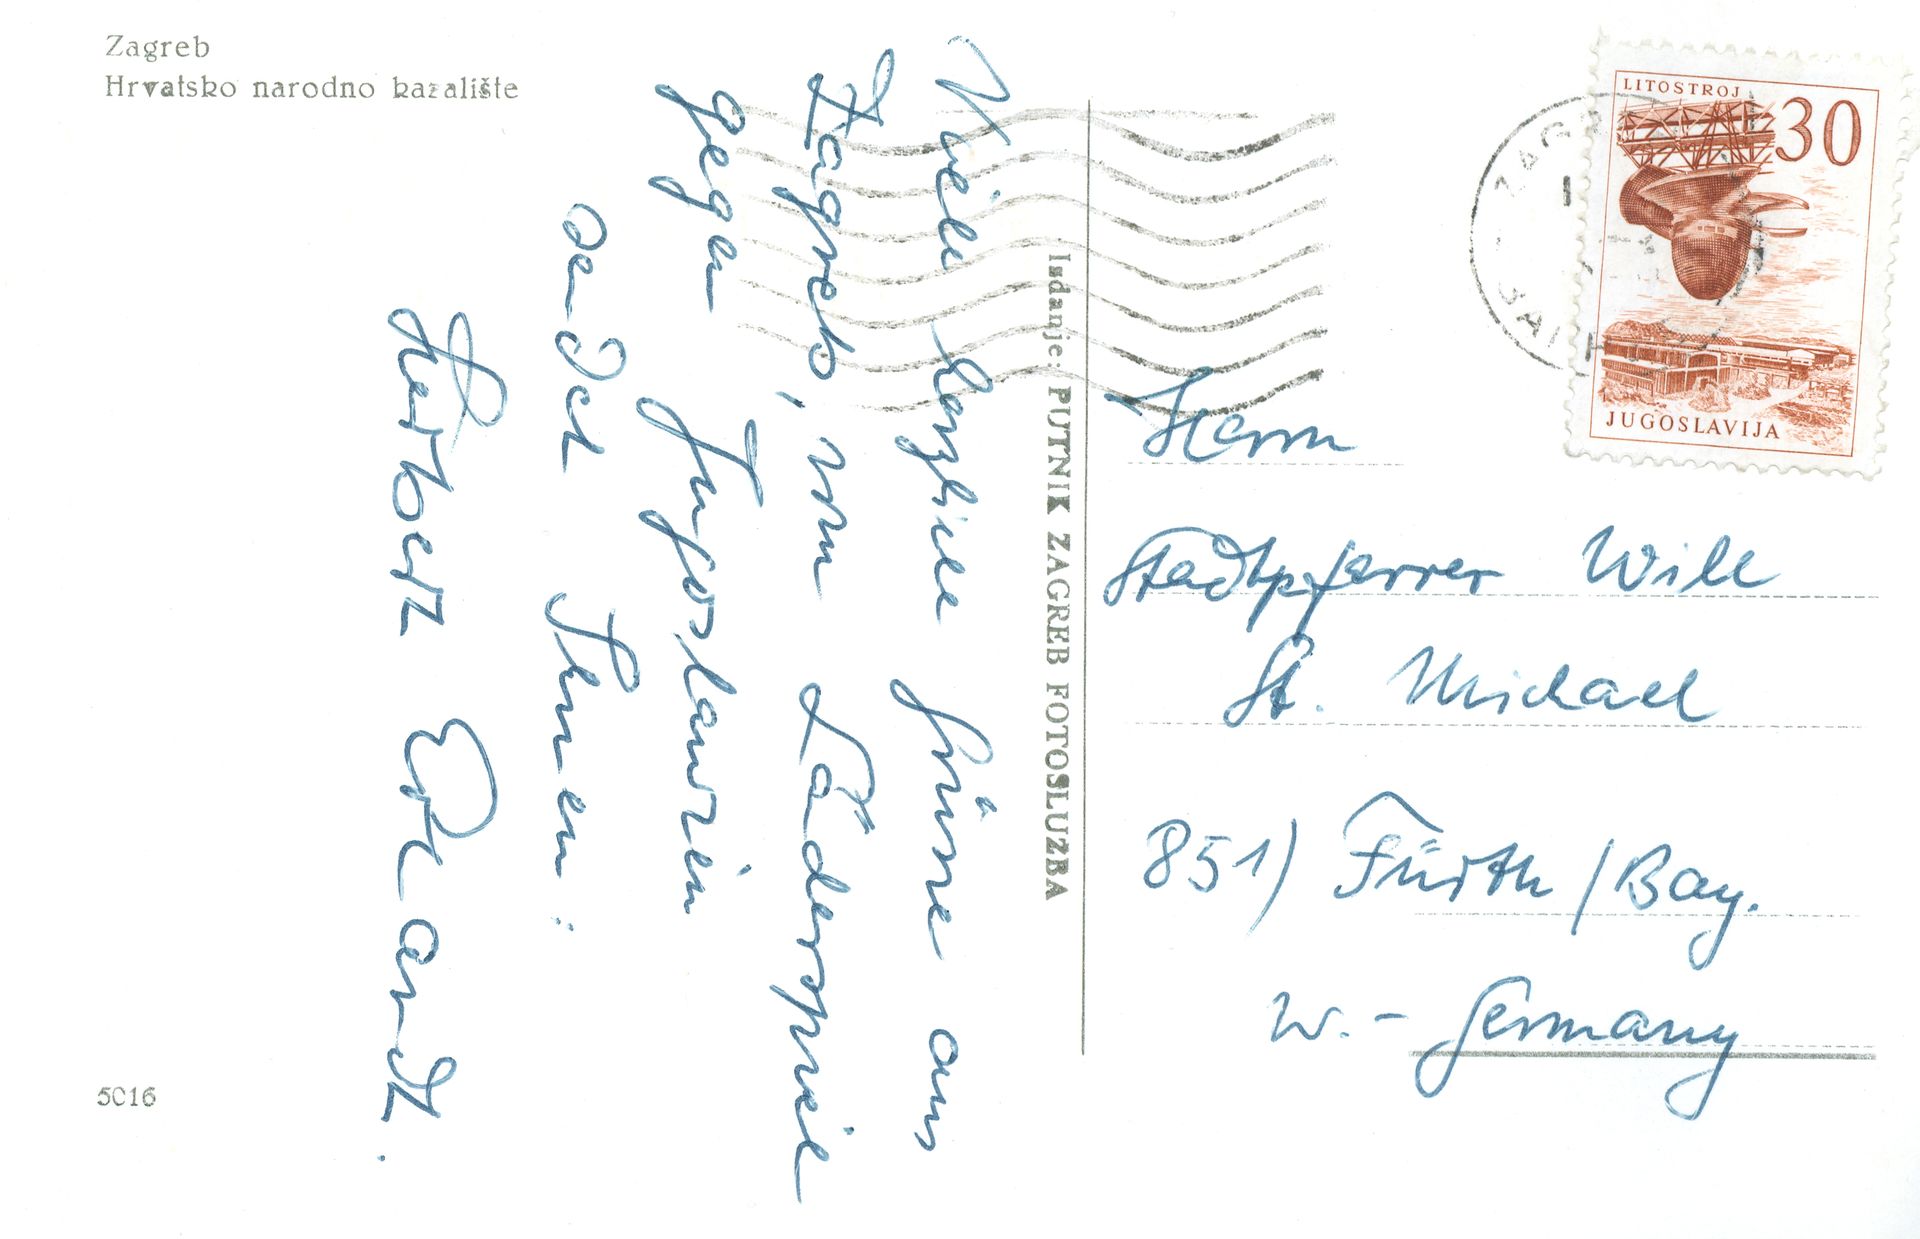 Zagreb
Hrvatsko narodno kazalište
Viele herzliche Grüsse aus
Zagreb, vom Länderspiel
gegen Jugoslawien
sendet Ihnen:
Herbert Erhardt.
5016
Izdanje: PUTNIK ZAGREB FOTOSLUZBA
LITOSTROJ
30
JUGOSLAVIJA
ZAGR
Herrn
Stadtpfarrer Will
St. Michael
851) Fürth / Bay.
W.- Germany